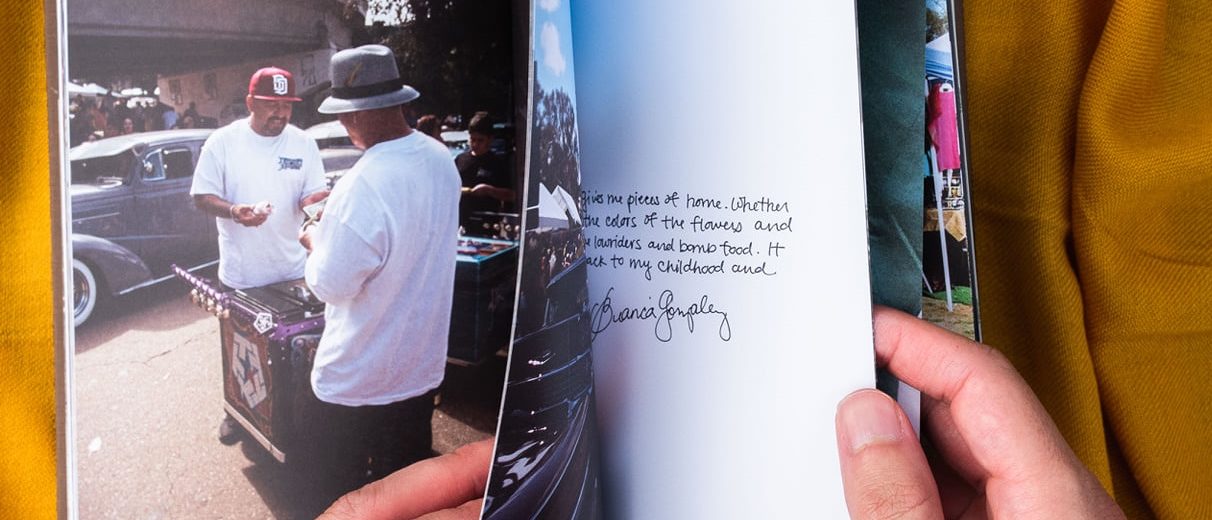 SD
gives me pieces of home. Whether
the colors of the flowers and
lowriders and bomb food. It
to my childhood and
Bianca Gonzalez